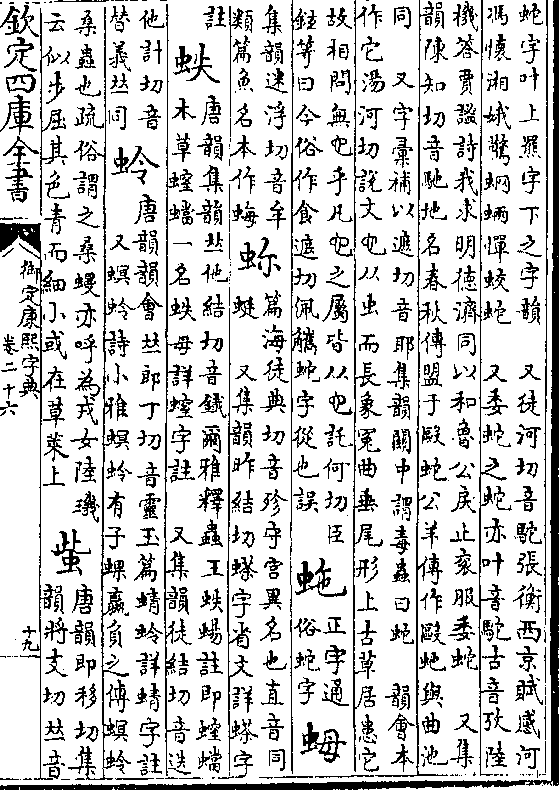 蛇字叶上羆字下之字韻　又徒河切音駝張衡西京賦感河
馮懷湘娥驚蝄蜽憚蛟蛇　又委蛇之蛇亦叶音駝古音攷陸
機答賈謐詩我求明德濟同以和魯公戾止衮服委蛇　又集
韻陳知切音馳地名春秋傳盟于毆蛇公羊傳作毆虵與曲池
同　又字彙補以遮切音耶集韻關中謂毒蟲曰蛇　韻會本
作它湯河切說文它从虫而長象冤曲垂尾形上古草居患它
故相問無它乎凡它之屬皆从它託何切臣
鉉等曰今俗作食遮切佩觿蛇字從也誤
正字通
俗蛇字
集韻迷浮切音牟
類篇魚名本作
篇海徒典切音殄守宮異名也直音同
又集韻昨結切蠽字省文詳蠽字
註
蛈
唐韻集韻𠀤他結切音鐵爾雅釋蟲王蛈蝪註即螲蟷
本草螲蟷一名蛈母詳螲字註　又集韻徒結切音迭
他計切音
替義𠀤同
蛉
唐韻韻會𠀤郎丁切音靈玉篇蜻蛉詳蜻字註
又螟蛉詩小雅螟蛉有子蜾蠃負之傳螟蛉
桑蟲也疏俗謂之桑蟃亦呼為戎女陸璣
云似步屈其色青而細小或在草萊上
䖪
唐韻即移切集
韻將支切𠀤音
欽定四庫全書
御定康熙字典
卷二十六
十九